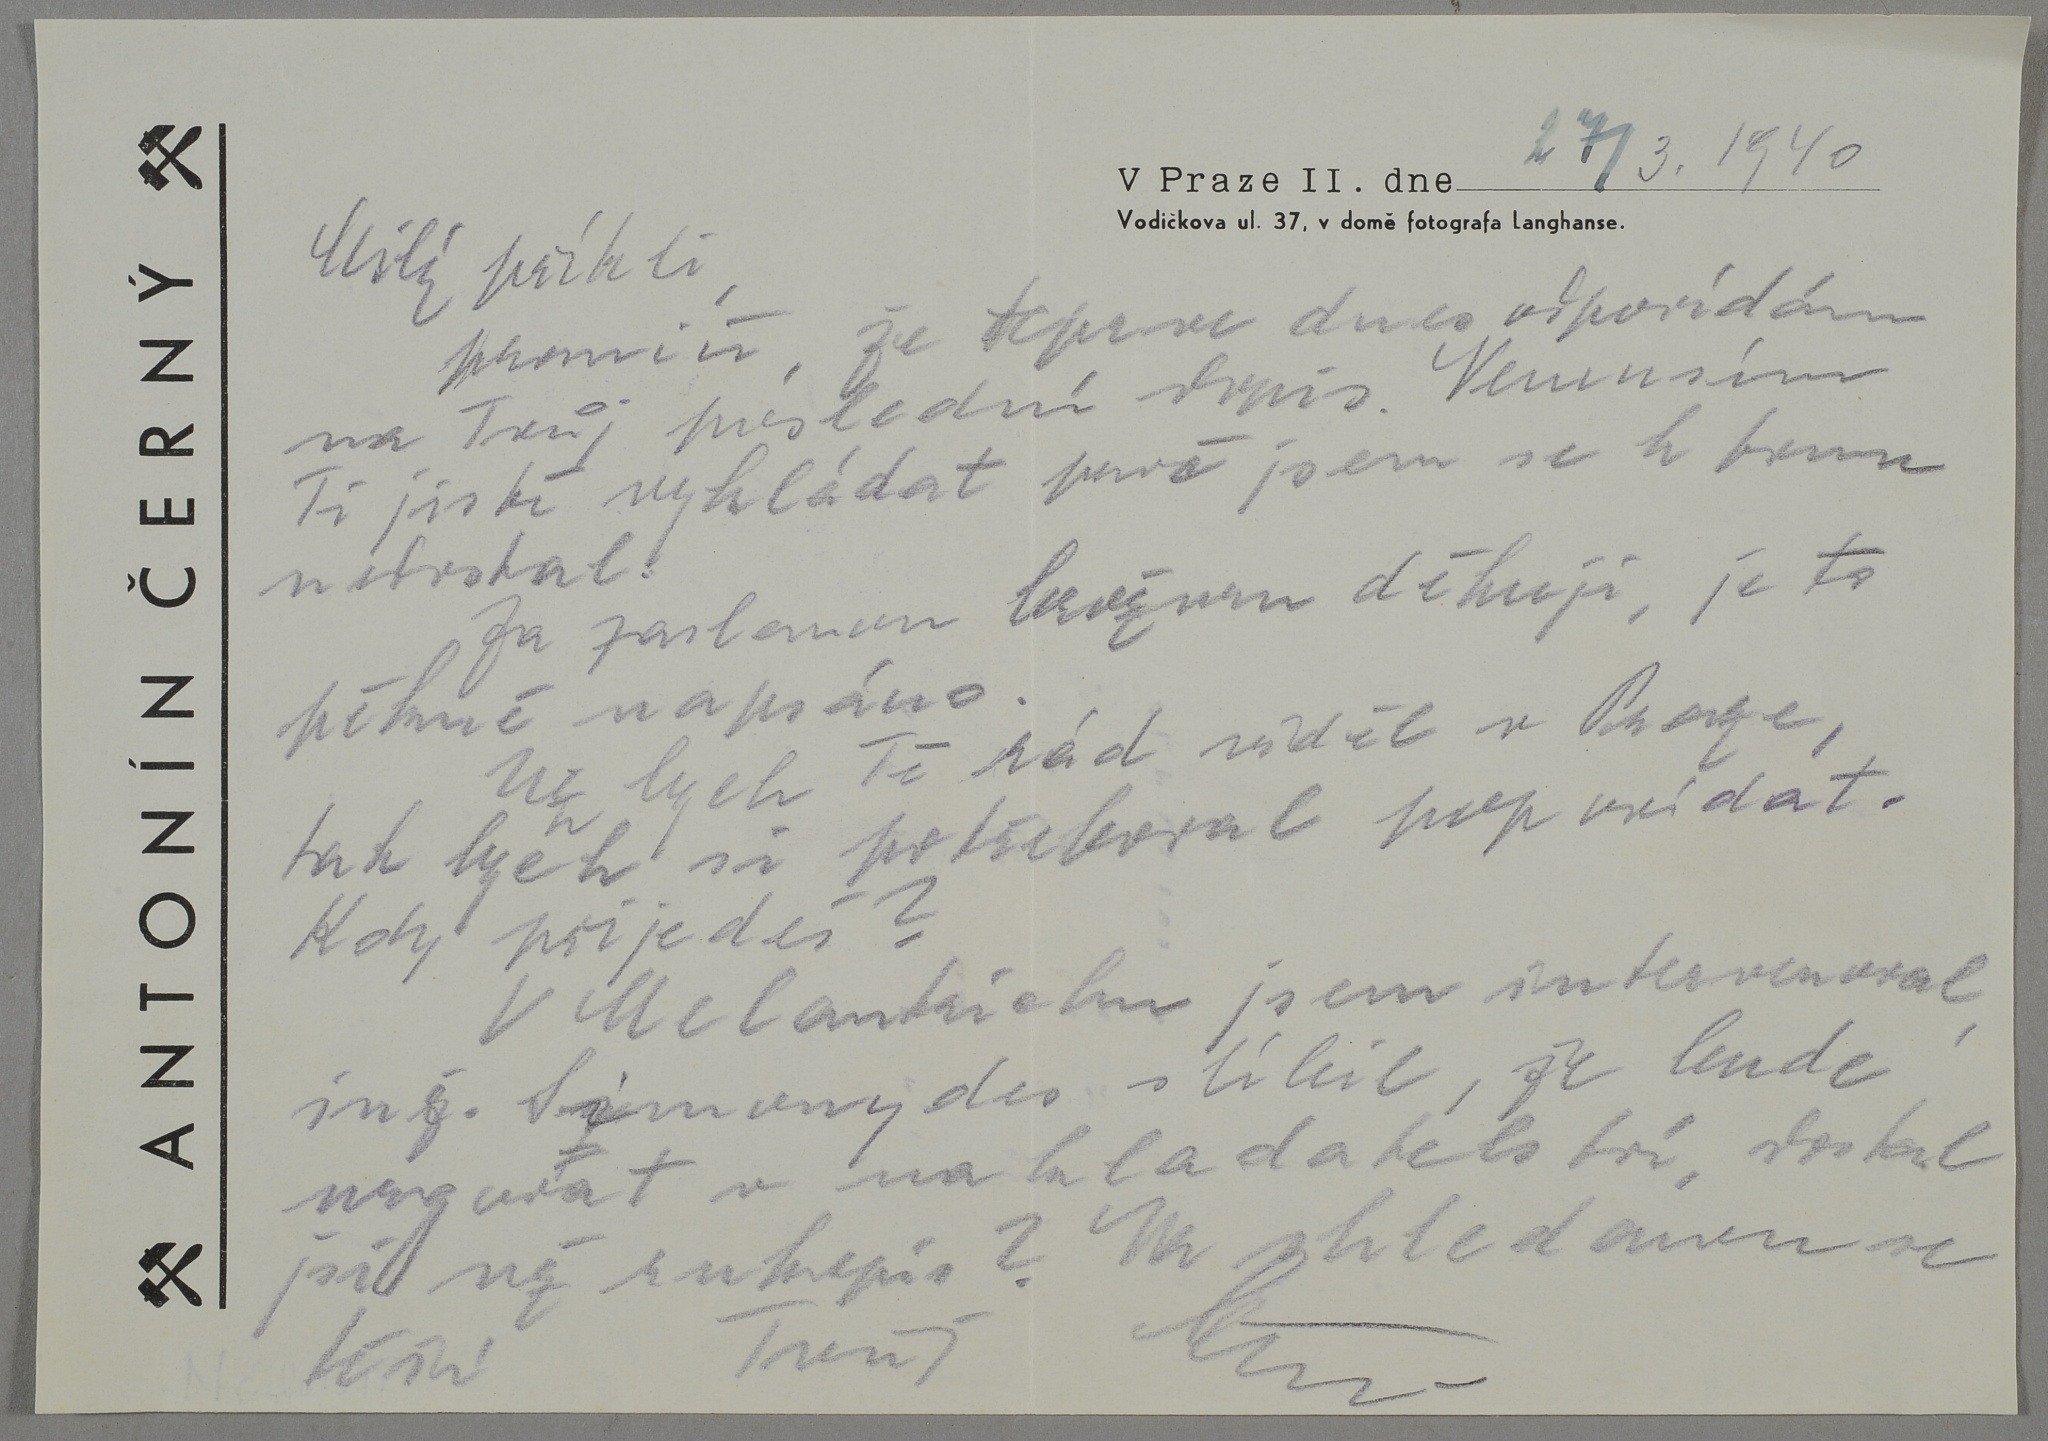 ANTONÍN ČERNÝ
V Praze II. dne 27/3. 1940
Vodičkova ul. 37, v domě fotografa Langhanse.
Milý příteli,
promiň, že teprve dnes odpovídám
na Tvůj poslední dopis. Nemusím
Ti jistě vykládat proč jsem se k tomu
nedostal.
Za zaslanou děkuji, je to
pěkně napsáno.
Už bych Tě rád viděl v Praze,
tak bych si potřeboval popovídat.
Kdy přijedeš?
V Melantrichu jsem intervenoval,
inž. Simonydes slíbil, že bude
urgovat v nakladatelství, dostal
jsi už rukopis? Na shledanou se
těší Tvůj